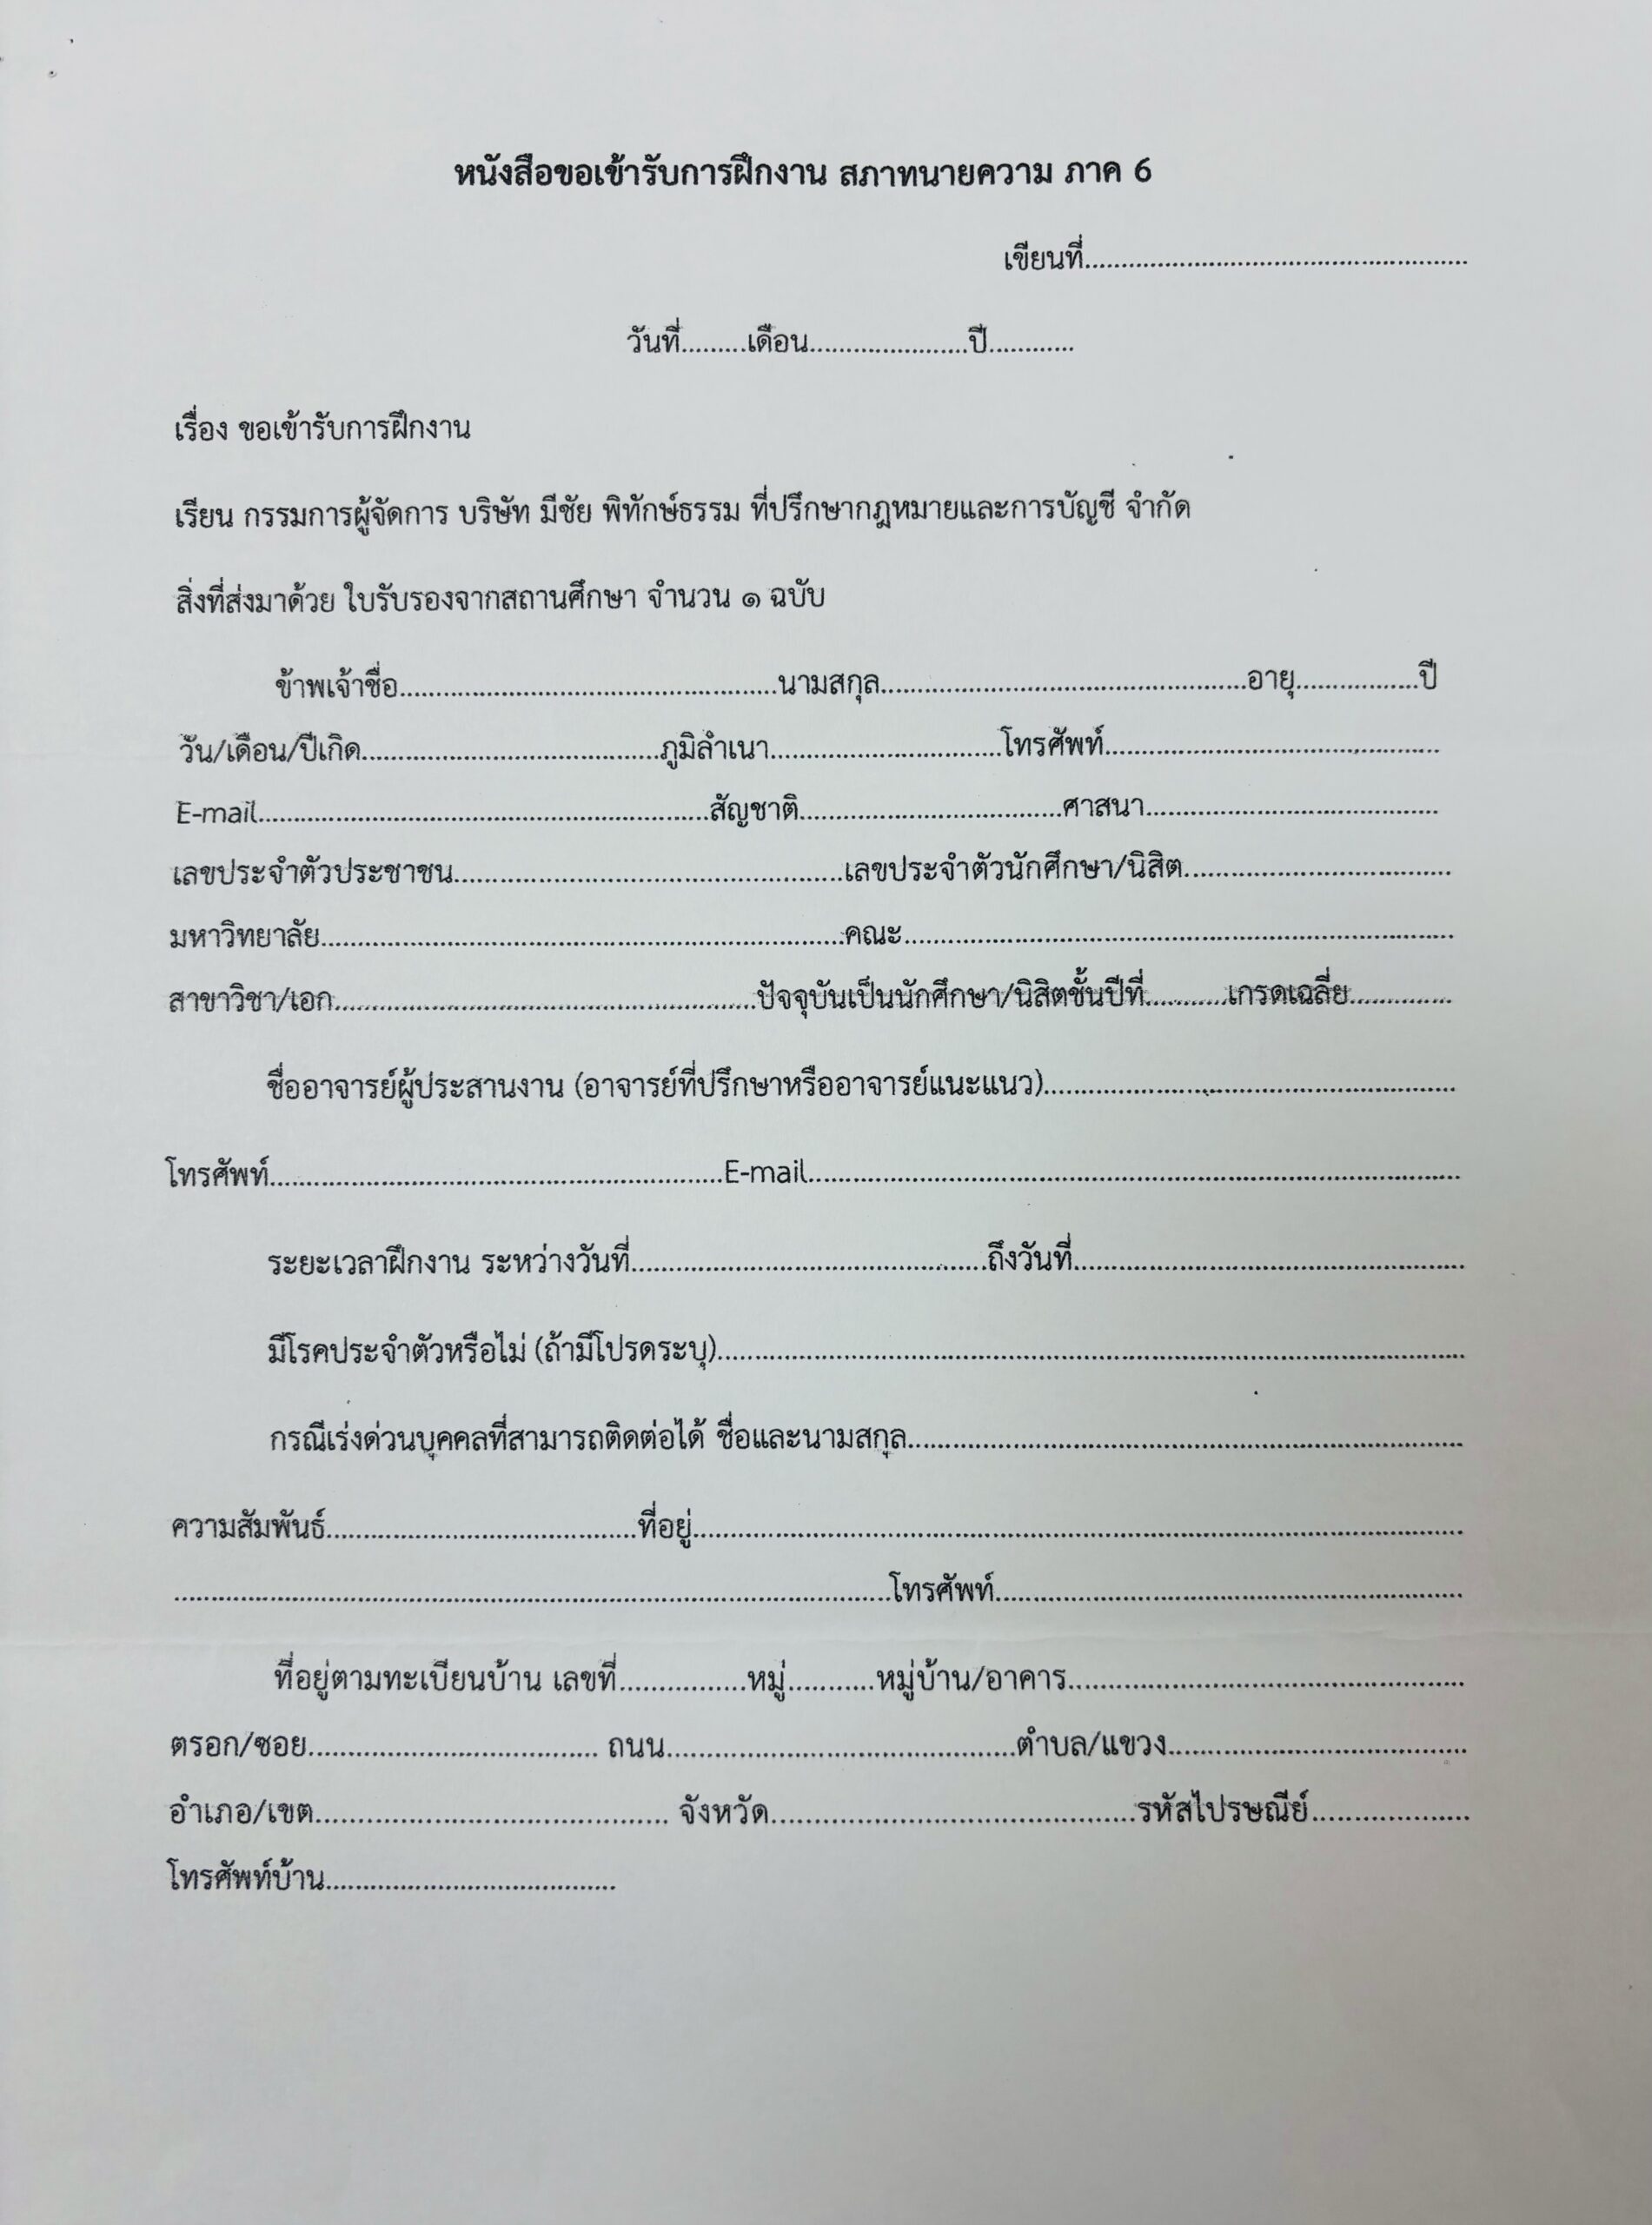 หนังสือขอเข้ารับการฝึกงาน สภาทนายความ ภาค 6
เขียนที่....................................................
วันที่.........เดือน......................ปี............
เรื่อง ขอเข้ารับการฝึกงาน
เรียน กรรมการผู้จัดการ บริษัท มีชัย พิทักษ์ธรรม ที่ปรึกษากฎหมายและการบัญชี จำกัด
สิ่งที่ส่งมาด้วย ใบรับรองจากสถานศึกษา จำนวน ๑ ฉบับ
ข้าพเจ้าชื่อ....................................................นามสกุล..................................................อายุ.................ปี
วัน/เดือน/ปีเกิด.........................................ภูมิลำเนา................................โทรศัพท์..............................................
E-mail..............................................................สัญชาติ....................................ศาสนา........................................
เลขประจำตัวประชาชน......................................................เลขประจำตัวนักศึกษา/นิสิต.....................................
มหาวิทยาลัย........................................................................คณะ...........................................................................
สาขาวิชา/เอก..........................................................ปัจจุบันเป็นนักศึกษา/นิสิตชั้นปีที่...........เกรดเฉลี่ย..............
ชื่ออาจารย์ผู้ประสานงาน (อาจารย์ที่ปรึกษาหรืออาจารย์แนะแนว).........................................................
โทรศัพท์..............................................................E-mail..........................................................................................
ระยะเวลาฝึกงาน ระหว่างวันที่.................................................ถึงวันที่......................................................
มีโรคประจำตัวหรือไม่ (ถ้ามีโปรดระบุ).......................................................................................................
กรณีเร่งด่วนบุคคลที่สามารถติดต่อได้ ชื่อและนามสกุล............................................................................
ความสัมพันธ์..........................................ที่อยู่..........................................................................................................
...................................................................................................โทรศัพท์................................................................
ที่อยู่ตามทะเบียนบ้าน เลขที่.................หมู่............หมู่บ้าน/อาคาร......................................................
ตรอก/ซอย........................................ ถนน................................................ตำบล/แขวง.........................................
อำเภอ/เขต................................................ จังหวัด..................................................รหัสไปรษณีย์......................
โทรศัพท์บ้าน........................................